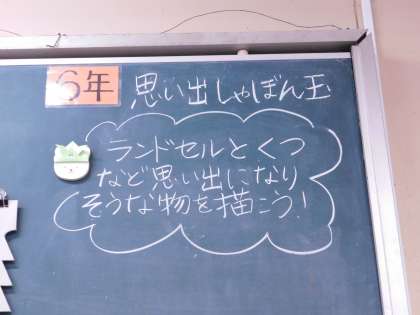 6年 思い出しゃぼん玉
ランドセルとくつ
など思い出になり
そうな物を描こう!